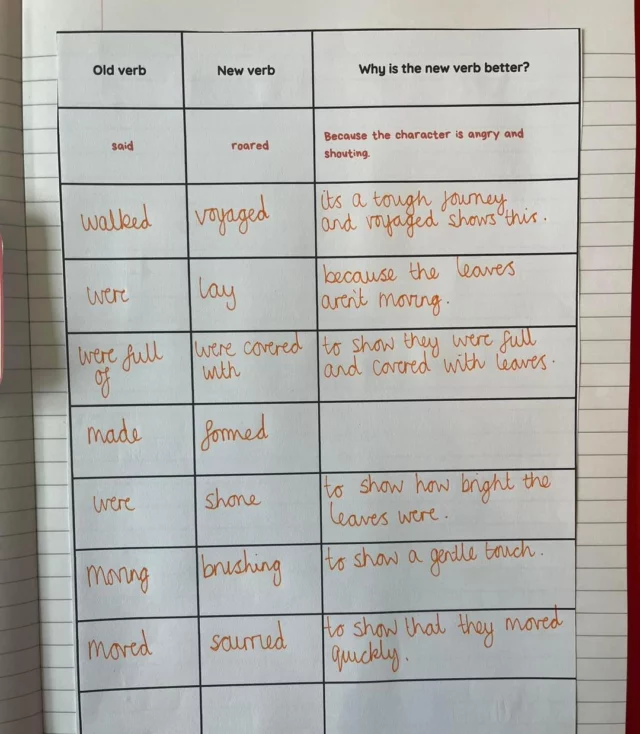 Old verb
New verb
Why is the new verb better?
said
roared
Because the character is angry and
shouting.
walked
voyaged
its a tough journey
and voyaged shows this.
were
lay
because the leaves
aren't moving.
were full
of
were covered
with
to show they were full
and covered with leaves.
made
formed
were
shone
to show how bright the
leaves were.
moving
brushing
to show a gentle touch.
moved
scurried
to show that they moved
quickly.